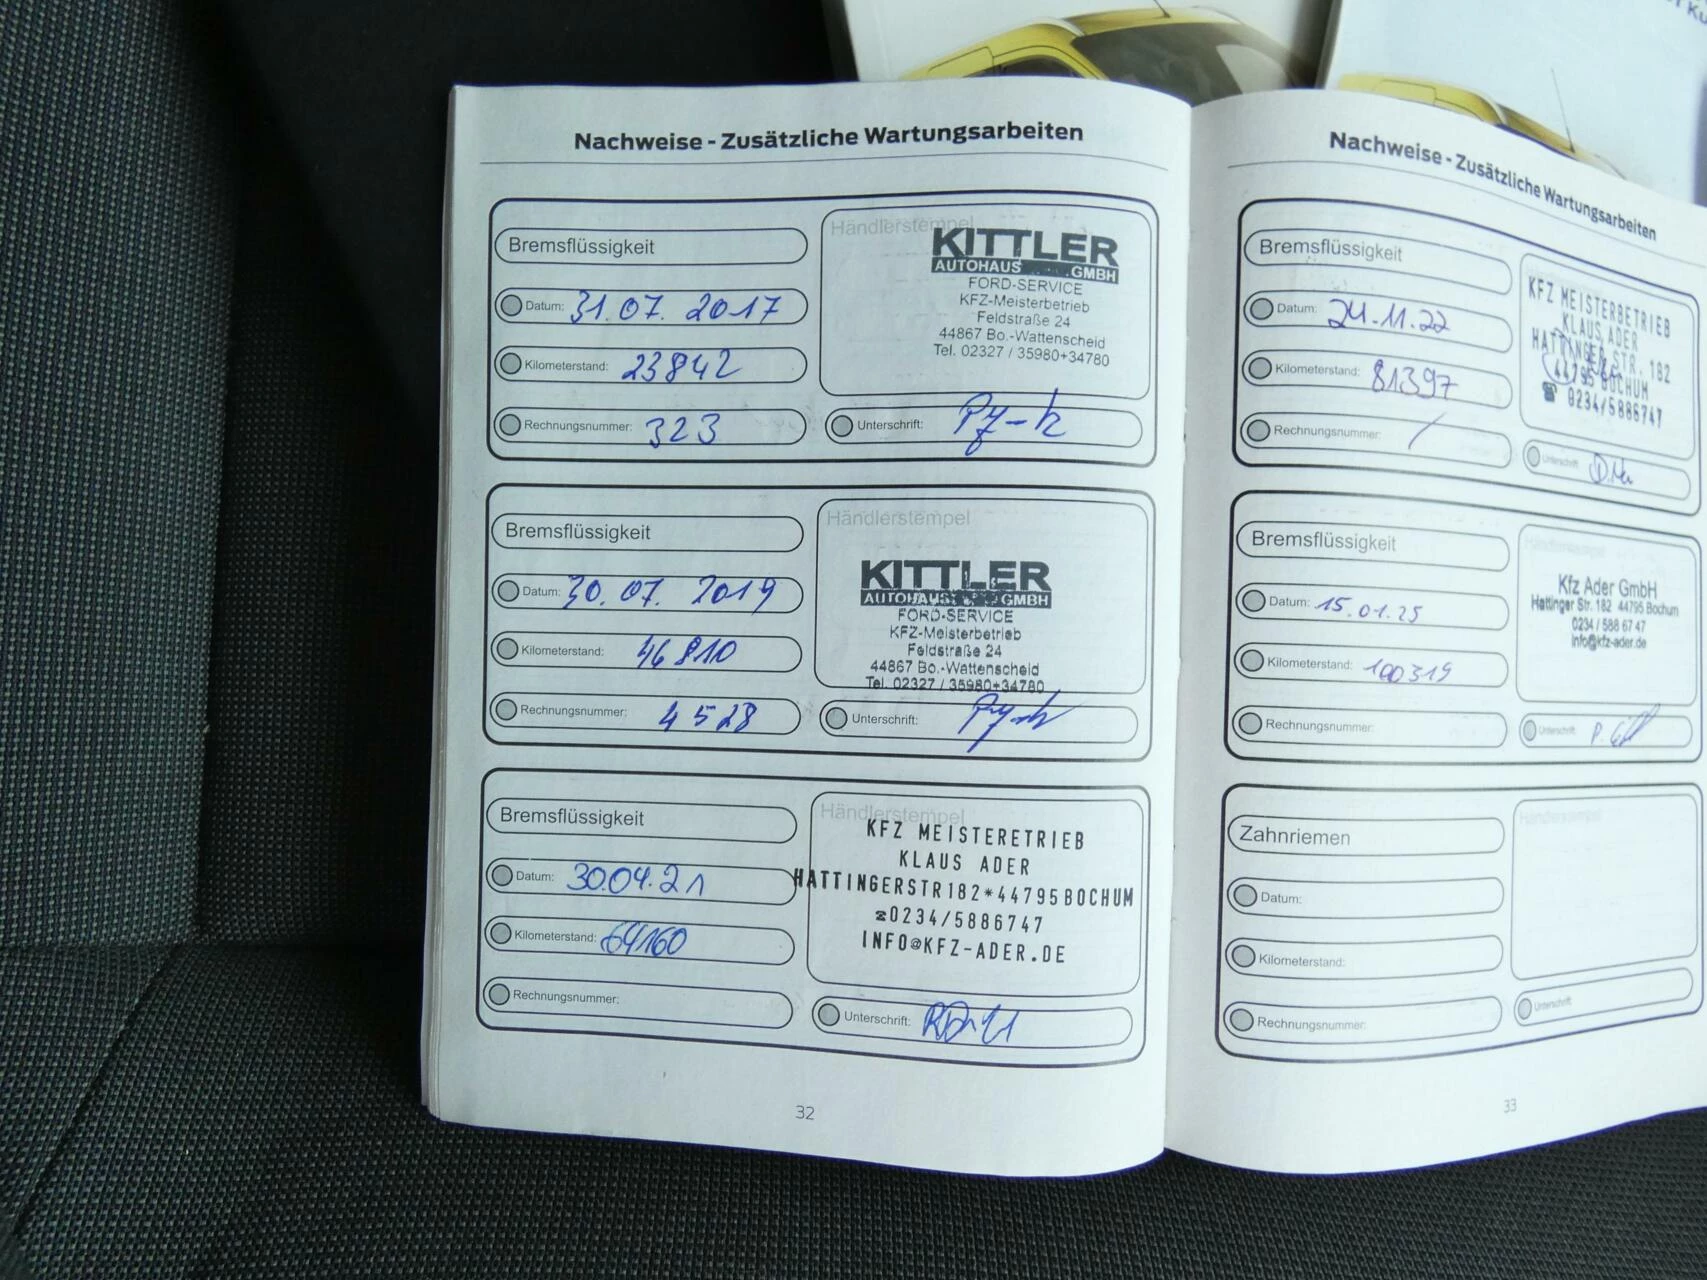 Nachweise - Zusätzliche Wartungsarbeiten
Bremsflüssigkeit
Datum: 31.07. 2017
Kilometerstand: 23842
Rechnungsnummer: 323
Händlerstempel
KITTLER
AUTOHAUS GMBH
FORD-SERVICE
KFZ-Meisterbetrieb
Feldstraße 24
44867 Bo.-Wattenscheid
Tel. 02327 / 35980+34780
Unterschrift:
Bremsflüssigkeit
Datum: 30. 07. 2019
Kilometerstand: 46810
Rechnungsnummer: 4528
Händlerstempel
KITTLER
AUTOHAUS GMBH
FORD-SERVICE
KFZ-Meisterbetrieb
Feldstraße 24
44867 Bo.-Wattenscheid
Tel. 02327 / 35980+34780
Unterschrift:
Bremsflüssigkeit
Datum: 30.04.21
Kilometerstand: 64160
Rechnungsnummer:
Händlerstempel
KFZ MEISTERETRIEB
KLAUS ADER
HATTINGERSTR182*44795BOCHUM
☎0234/5886747
INFO@KFZ-ADER.DE
Unterschrift:
32
Nachweise - Zusätzliche Wartungsarbeiten
Bremsflüssigkeit
Datum: 24.11.22
Kilometerstand: 81397
Rechnungsnummer: /
KFZ MEISTERBETRIEB
KLAUS ADER
HATTINGER STR. 182
44795 BOCHUM
☎ 0234/5886747
Unterschrift:
Bremsflüssigkeit
Datum: 15.01.25
Kilometerstand: 100319
Rechnungsnummer:
Händlerstempel
Kfz Ader GmbH
Hattinger Str. 182 44795 Bochum
0234 / 588 67 47
info@kfz-ader.de
Unterschrift:
Zahnriemen
Datum:
Kilometerstand:
Rechnungsnummer:
Händlerstempel
Unterschrift:
33